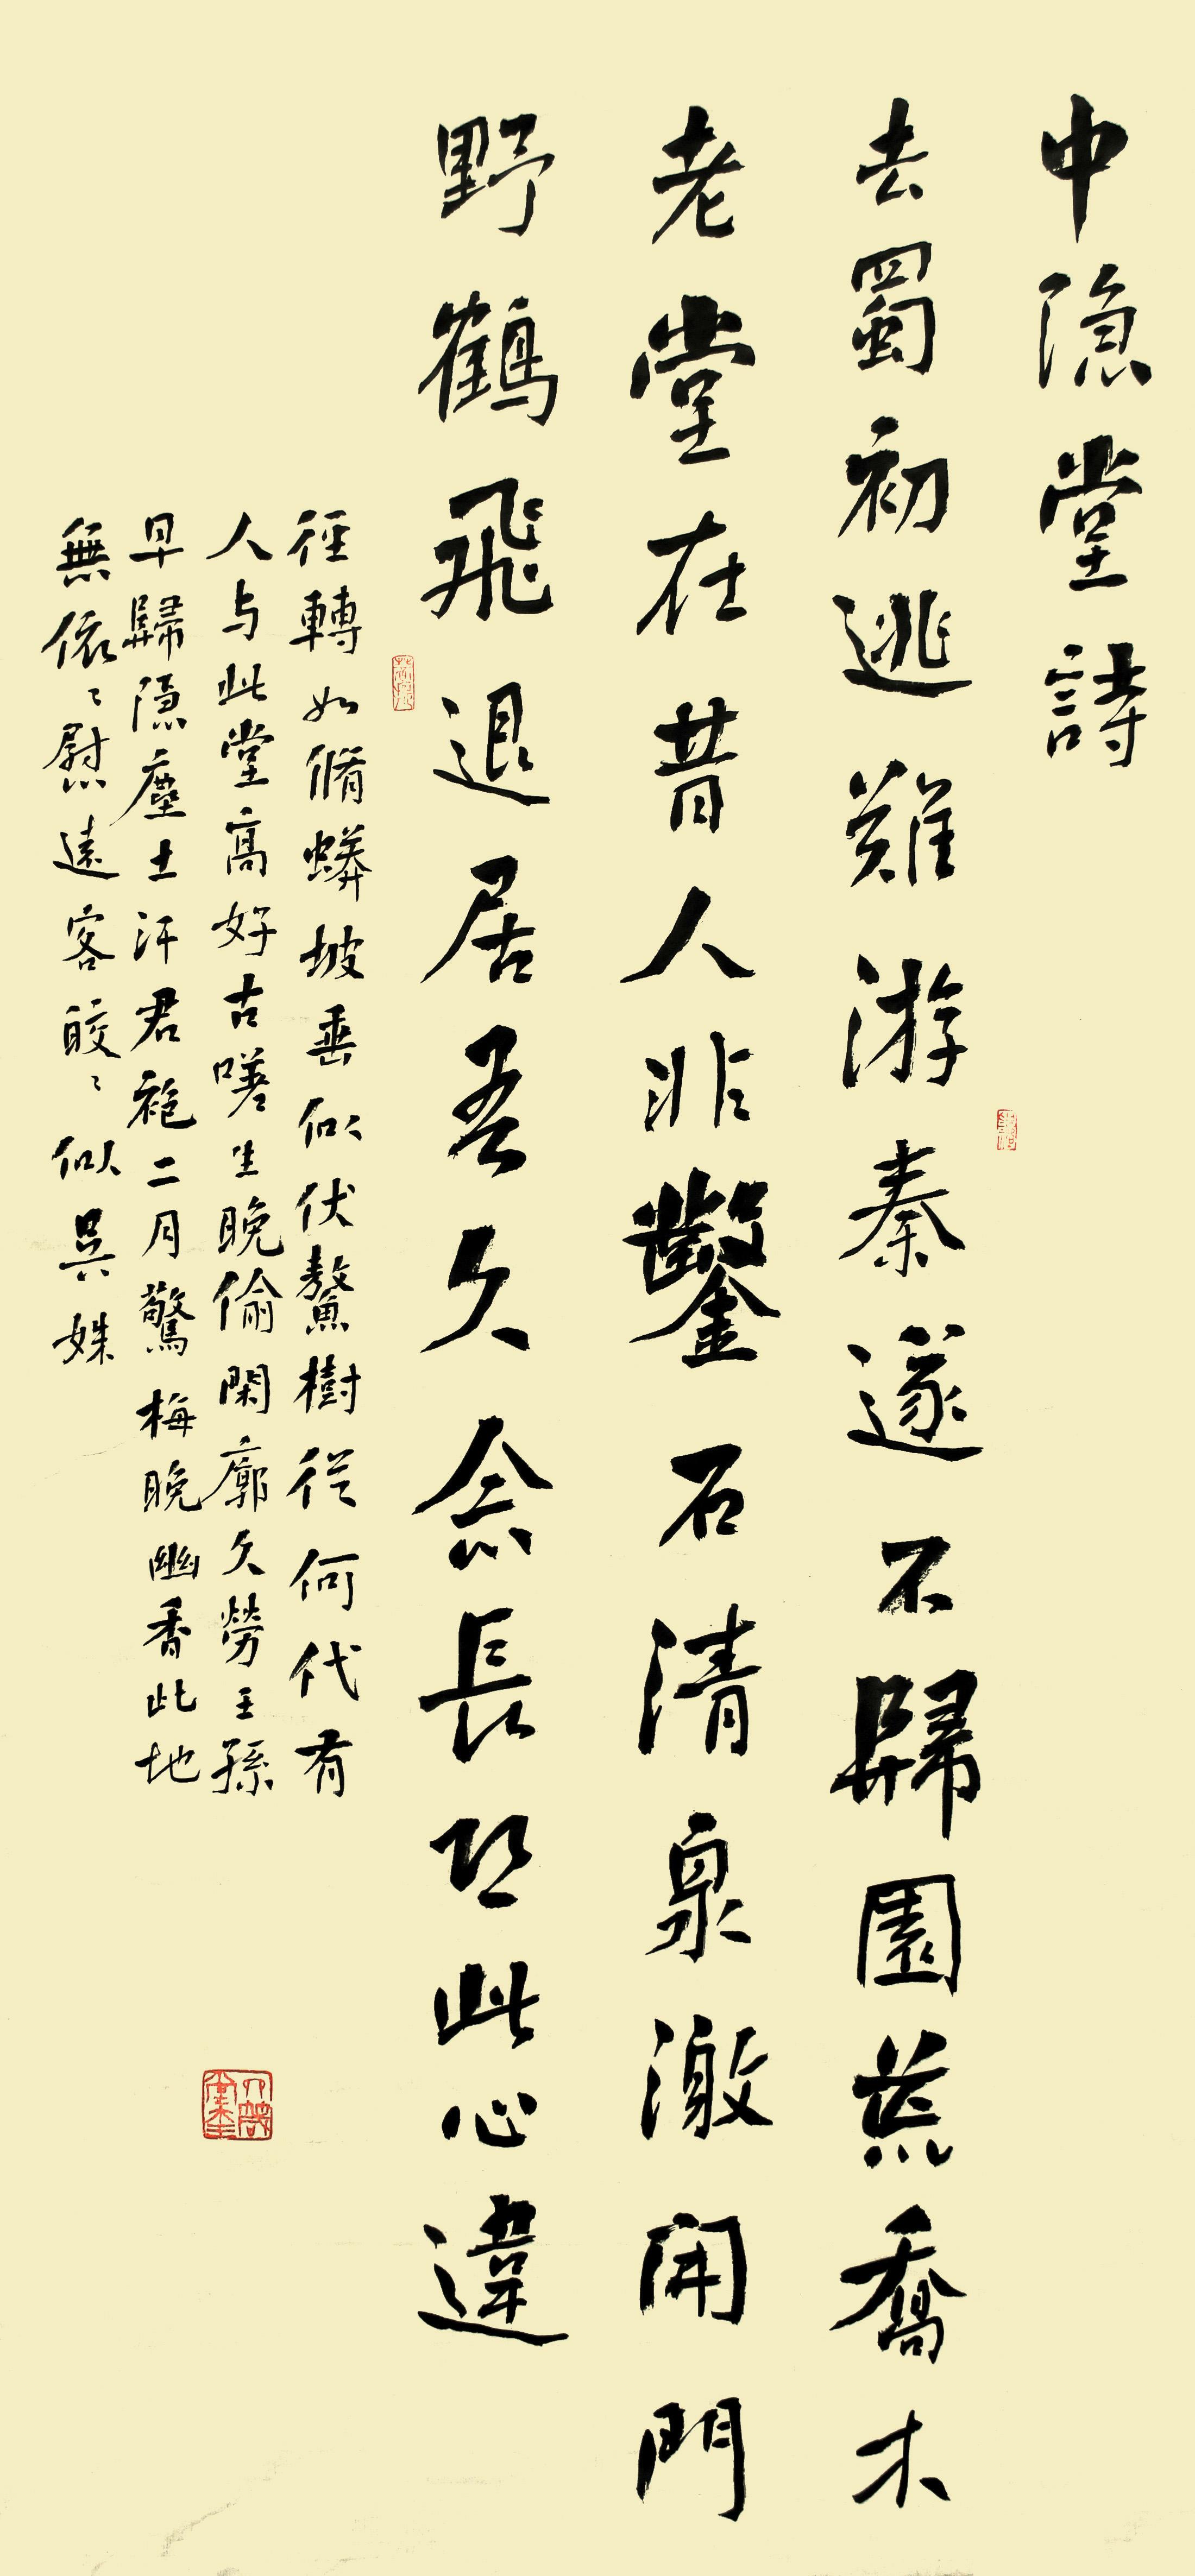 中隐堂詩
去蜀初逃難游秦遂不歸園荒喬木
老堂在昔人非鑿石清泉激開門
野鶴飛退居吾久念長恐此心違
徑轉如脩蟒坡垂似伏鰲樹從何代有
人与此堂高好古嗟生晚偷閑厭久勞王孫
早歸隐塵土汙君袍二月驚梅晚幽香此地
無依々慰遠客皎々似吳姝